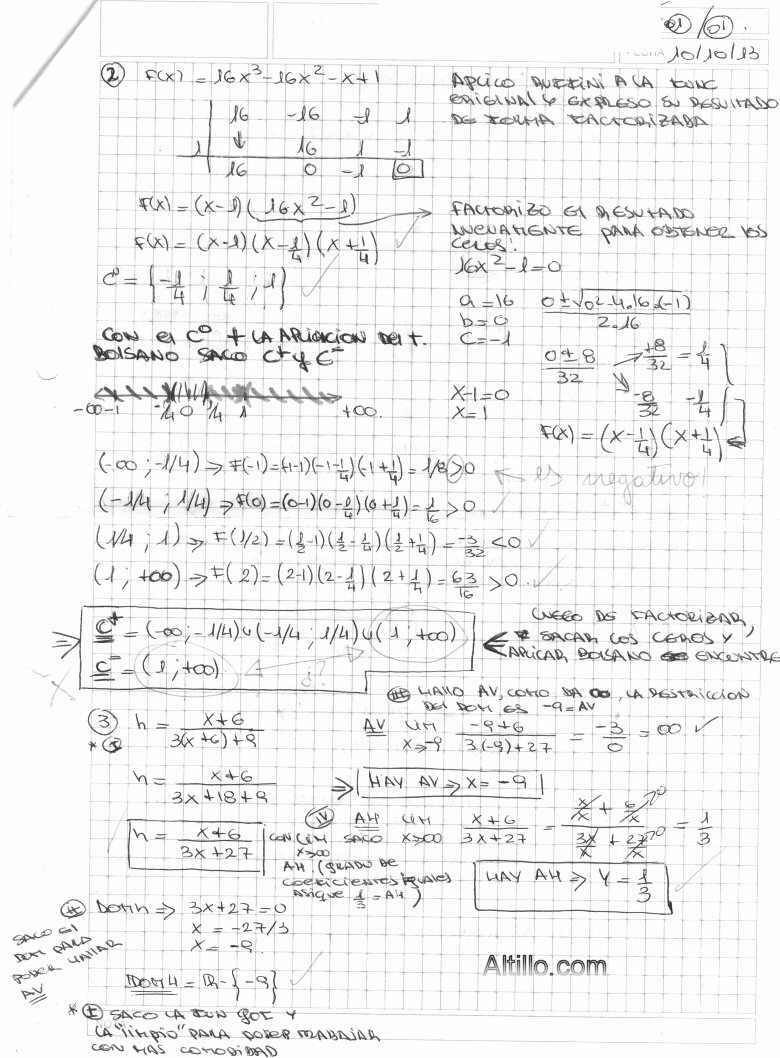 01/01.
FECHA 10/10/13
② F(X) = 16X³-16X²-X+1
16 -16 -1 1
1 ↓ 16 1 -1
16 0 -1 0
APLICO RUFFINI A LA FUNC
ORIGINAL Y EXPRESO SU RESULTADO
DE FORMA FACTORIZADA
F(X) = (X-1)(16X²-1)
F(X) = (X-1)(X-1/4)(X+1/4)
C⁰ = {-1/4 ; 1/4 ; 1}
FACTORIZO EL RESULTADO
NUEVAMENTE PARA OBTENER LOS
CEROS!
16X²-1=0
a=16
b=0
c=-1
0±√0²-4.16.(-1)
2.16
0±8
32
+8/32 = 1/4
-8/32 -1/4
X-1=0
X=1
F(X) = (X-1/4)(X+1/4)
CON EL C⁰ + LA APLICACION DEL T.
BOLSANO SACO C⁺ y C⁻
-∞ -1 -1/4 0 1/4 1 +∞.
(-∞ ; -1/4) → F(-1)=(-1-1)(-1-1/4)(-1+1/4)=1/8>0 ← es negativo!
(-1/4 ; 1/4) → F(0)=(0-1)(0-1/4)(0+1/4)=1/16>0 ✓
(1/4 ; 1) → F(1/2)=(1/2-1)(1/2-1/4)(1/2+1/4)=-3/32<0 ✓
(1 ; +∞) → F(2)=(2-1)(2-1/4)(2+1/4)=63/16>0. ✓
⇒ C⁺ = (-∞ ; -1/4)∪(-1/4 ; 1/4)∪(1 ; +∞)
C⁻ = (1 ; +∞) ¿?
LUEGO DE FACTORIZAR,
SACAR LOS CEROS Y
APLICAR BOLSANO ENCONTRE
③ h = X+6 / 3(X+6)+9
* Ⓘ
h = X+6 / 3X+18+9
h = X+6 / 3X+27
HALLO AV, COMO DA ∞, LA RESTRICCION
DEL DOM ES -9=AV
AV LIM X→-9 -9+6 / 3(-9)+27 = -3/0 = ∞ ✓
⇒ HAY AV → X = -9
Ⓘⓥ AH LIM X→∞ X+6 / 3X+27 = X/X + 6/X→0 / 3X/X + 27/X→0 = 1/3
CON LIM X→∞ SACO
AH (GRADO DE
COEFICIENTES IGUALES
ASIQUE 1/3 = AH)
HAY AH ⇒ Y = 1/3
Ⓘⓘ DOM h ⇒ 3X+27=0
X = -27/3
X = -9
SACO EL
DOM PARA
PODER HALLAR
AV
DOM h = R-{-9} ✓
Altillo.com
* Ⓘ SACO LA FUN Y
LA "limpio" PARA PODER TRABAJAR
CON MAS COMODIDAD